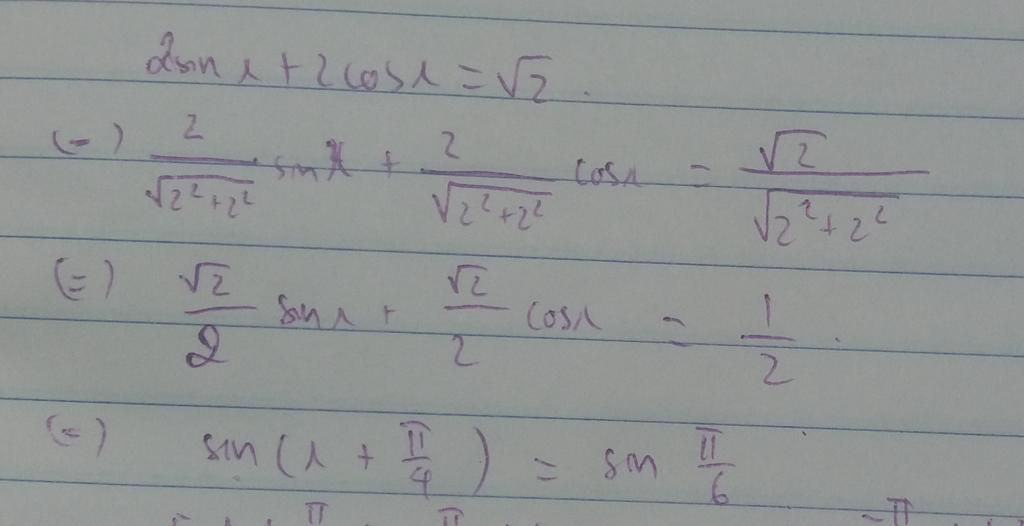 2sin x + 2cos x = √2.
(=) 2/√(2²+2²) sin x + 2/√(2²+2²) cos x = √2/√(2²+2²)
(=) √2/2 sin x + √2/2 cos x = 1/2.
(=) sin(x + π/4) = sin π/6